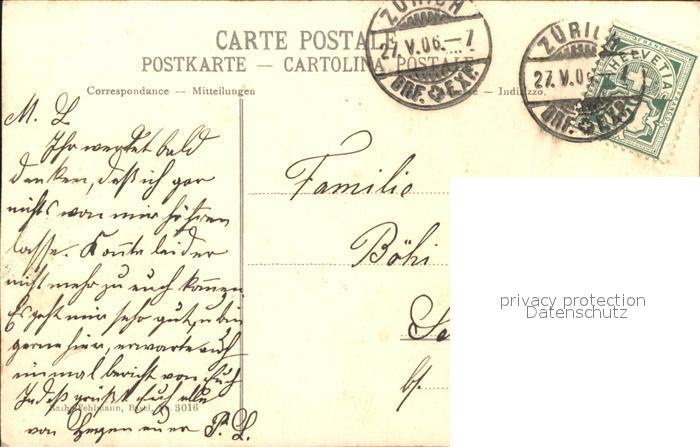 CARTE POSTALE
POSTKARTE — CARTOLINA POSTALE
Correspondance — Mitteilungen
Indirizzo.
ZÜRICH
27.V.06.–7
BRF. EXP.
ZÜRICH
27.V.06.–7
BRF. EXP.
HELVETIA
M. L.
Ihr werdet bald
denken, daß ich gar
nichts von mir hören
lasse. Konnte leider
nicht mehr zu euch kommen.
Es geht mir sehr gut, u. bin
gerne hier, erwarte auch
einmal bericht von Euch
Indeß grüßt Euch alle
von Herzen euer P. L.
Familie
Böhi
privacy protection
Datenschutz
3016